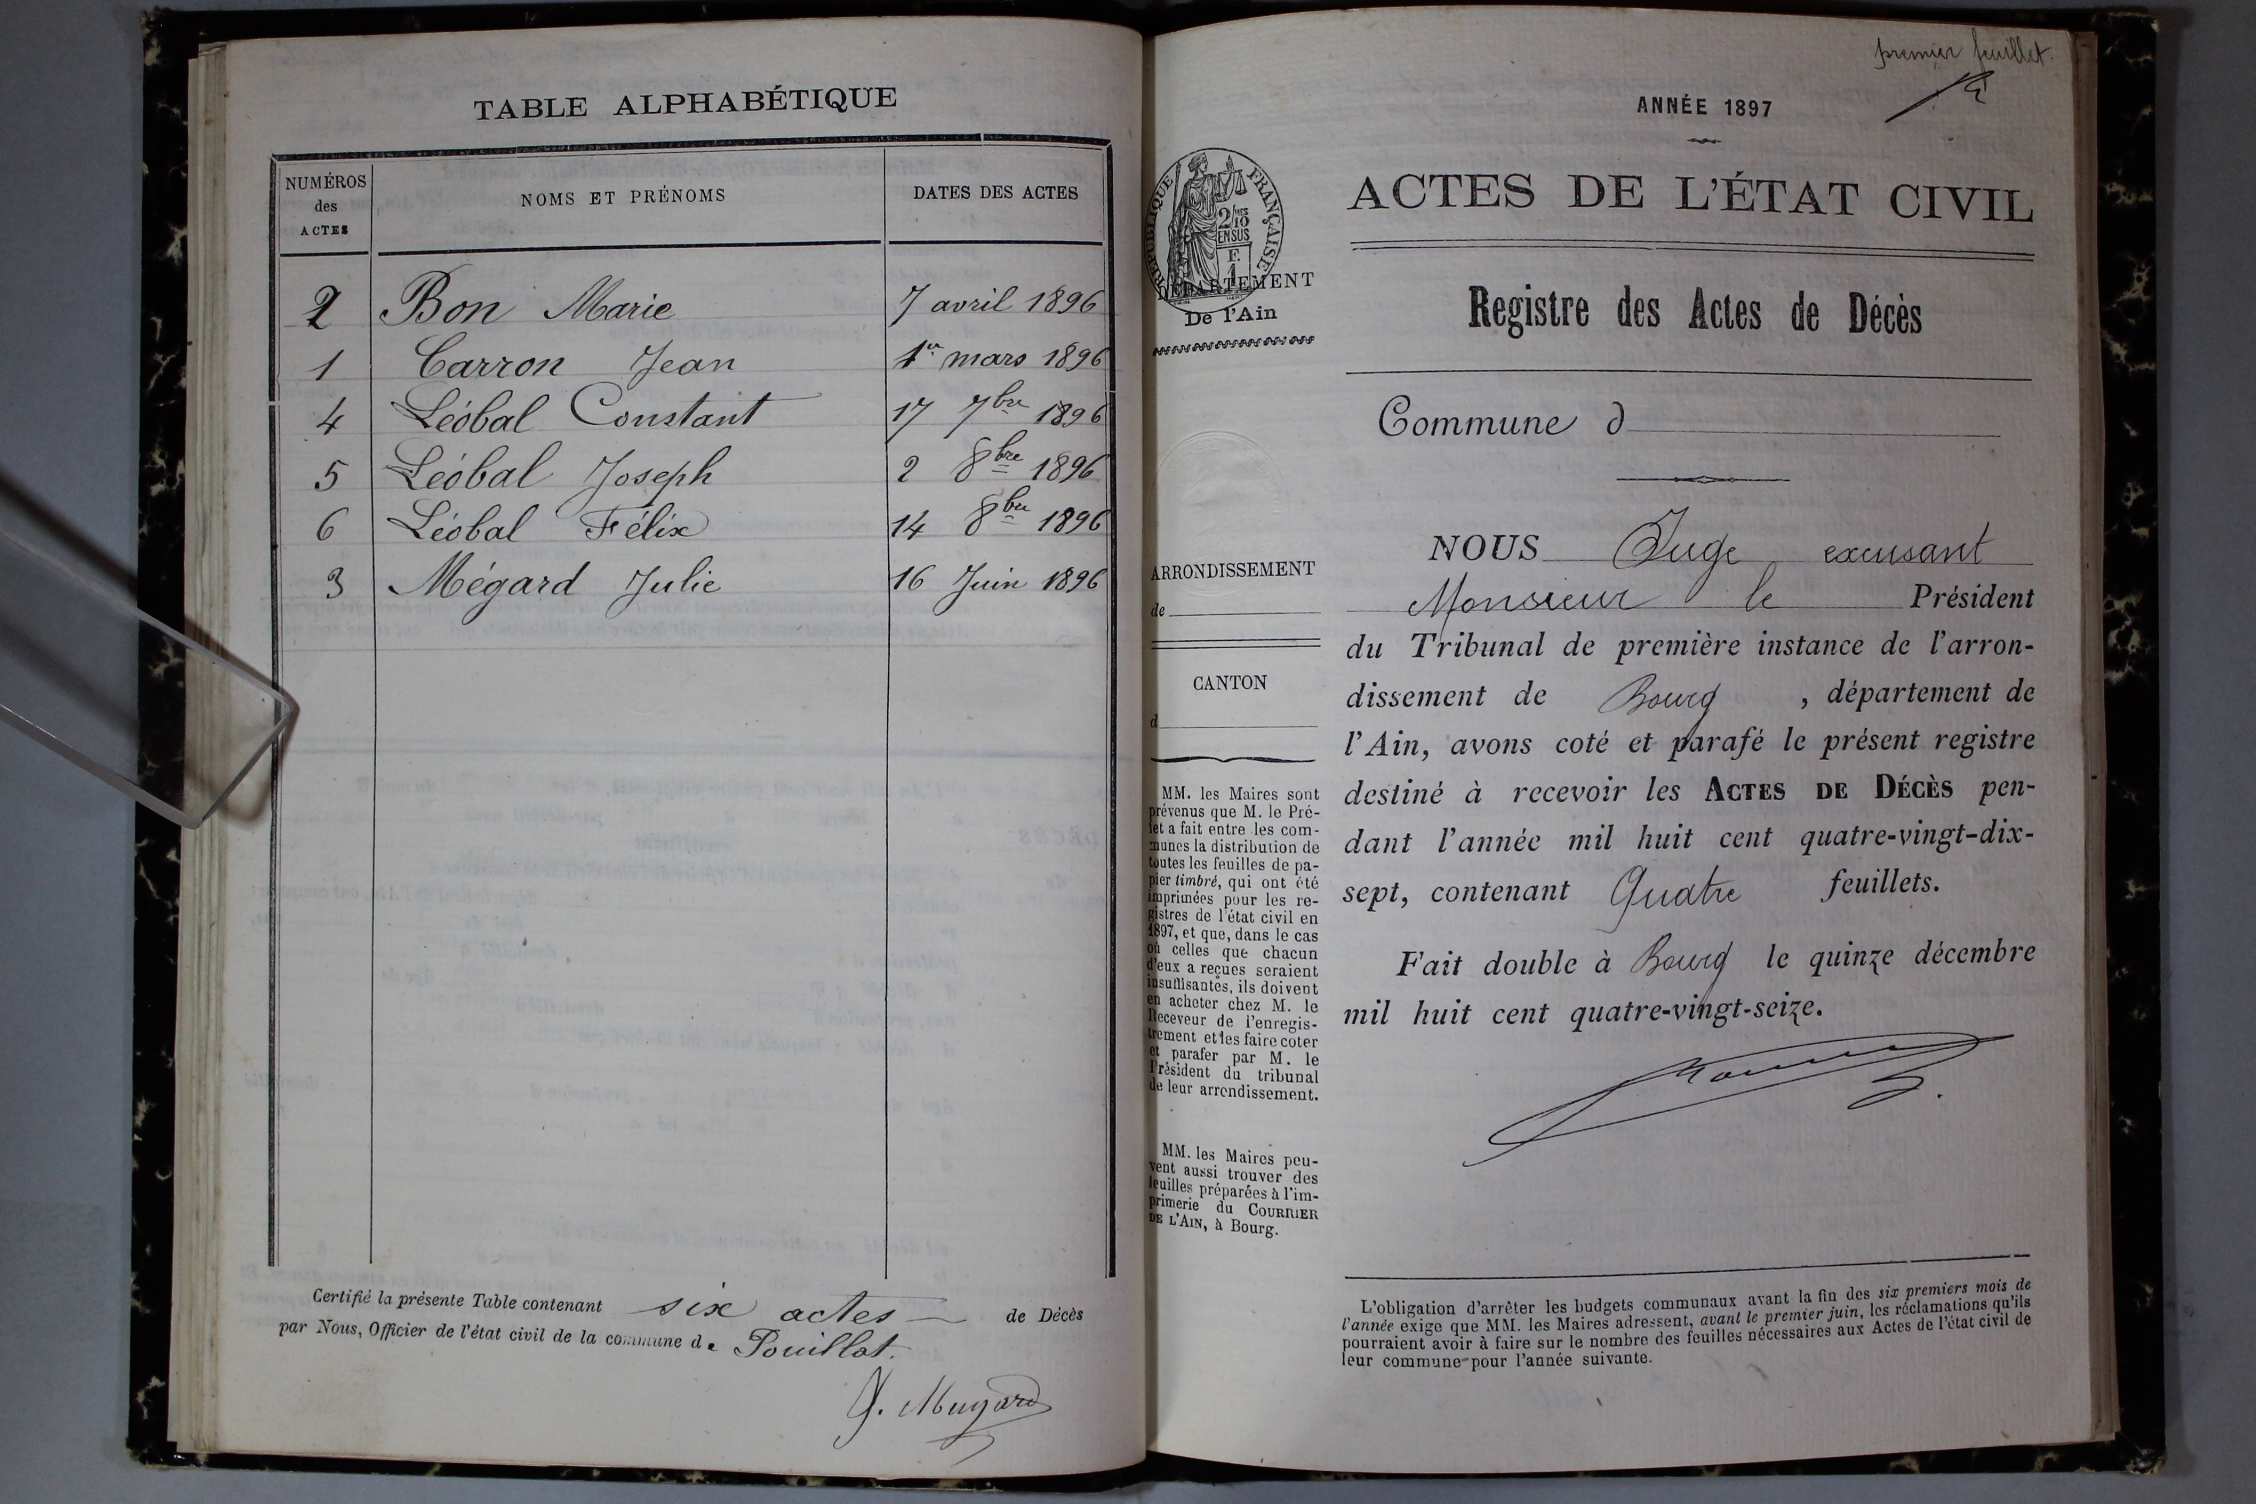 TABLE ALPHABÉTIQUE
NUMÉROS des ACTES NOMS ET PRÉNOMS DATES DES ACTES
2 Bon Marie 7 avril 1896
1 Carron Jean 1er mars 1896
4 Léobal Constant 17 7bre 1896
5 Léobal Joseph 2 8bre 1896
6 Léobal Félix 14 8bre 1896
3 Mégard Julie 16 Juin 1896
Certifié la présente Table contenant six actes de Décès
par Nous, Officier de l'état civil de la commune de Pouillat.
premier feuillet.
ANNÉE 1897
ACTES DE L'ÉTAT CIVIL
RÉPUBLIQUE FRANÇAISE
2/10 EN SUS
F. 1
DÉPARTEMENT
De l'Ain
Registre des Actes de Décès
Commune d
ARRONDISSEMENT
de
CANTON
d
MM. les Maires sont
prévenus que M. le Pré-
fet a fait entre les com-
munes la distribution de
toutes les feuilles de pa-
pier timbré, qui ont été
imprimées pour les re-
gistres de l'état civil en
1897, et que, dans le cas
où celles que chacun
d'eux a reçues seraient
insuffisantes, ils doivent
en acheter chez M. le
Receveur de l'enregis-
trement et les faire coter
et parafer par M. le
Président du tribunal
de leur arrondissement.
MM. les Maires peu-
vent aussi trouver des
feuilles préparées à l'im-
primerie du COURRIER
DE L'AIN, à Bourg.
NOUS Juge excusant
Monsieur le Président
du Tribunal de première instance de l'arron-
dissement de Bourg, département de
l'Ain, avons coté et parafé le présent registre
destiné à recevoir les ACTES DE DÉCÈS pen-
dant l'année mil huit cent quatre-vingt-dix-
sept, contenant Quatre feuillets.
Fait double à Bourg le quinze décembre
mil huit cent quatre-vingt-seize.
L'obligation d'arrêter les budgets communaux avant la fin des six premiers mois de
l'année exige que MM. les Maires adressent, avant le premier juin, les réclamations qu'ils
pourraient avoir à faire sur le nombre des feuilles nécessaires aux Actes de l'état civil de
leur commune pour l'année suivante.